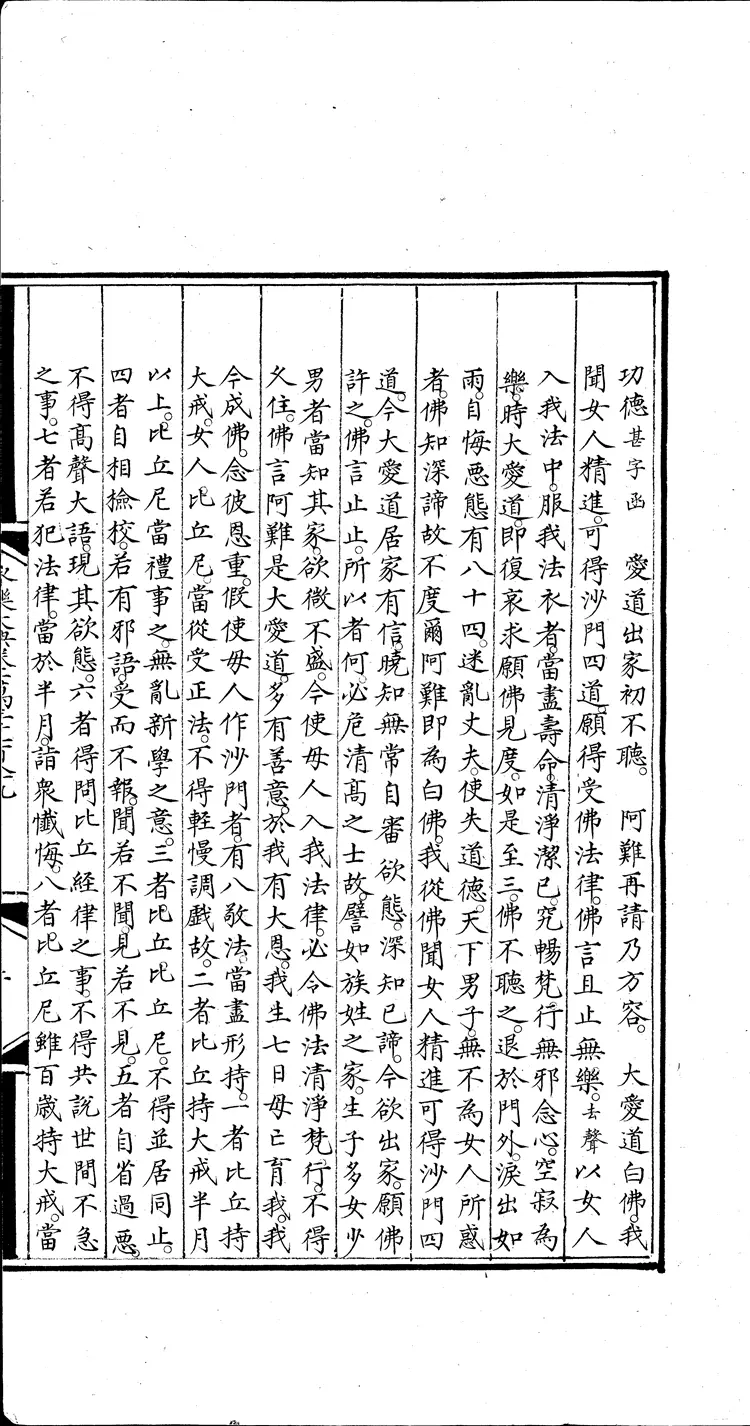 功德甚字函　愛道出家初不聽。　阿難再請乃方容。　大愛道白佛。我
聞女人精進。可得沙門四道。願得受佛法律。佛言且止無樂。去聲以女人
入我法中。服我法衣者。當盡壽命。清淨潔已。究暢梵行。無邪念心。空寂為
樂。時大愛道。即復哀求願佛見度。如是至三。佛不聽之。退於門外。淚出如
雨。自悔惡態有八十四。迷亂丈夫。使失道德。天下男子。無不為女人所惑
者。佛知深諦故不度爾阿難即為白佛。我從佛聞女人精進可得沙門四
道。今大愛道居家有信。曉知無常自審欲態。深知已諦。今欲出家。願佛
許之。佛言止止。所以者何。必危清高之士故。譬如族姓之家。生子多女少
男者當知其家。欲微不盛。今使母人入我法律。必令佛法清淨梵行。不得
久住。佛言阿難是大愛道。多有善意。於我有大恩。我生七日母亡育我。我
今成佛。念彼恩重。假使母人作沙門者。有八敬法。當盡形持。一者比丘持
大戒。女人比丘尼。當從受正法。不得輕慢調戲故。二者比丘持大戒半月
以上。比丘尼當禮事之。無亂新學之意。三者比丘比丘尼。不得並居同止。
四者自相撿挍。若有邪語。受而不報。聞若不聞。見若不見。五者自省過惡。
不得高聲大語。現其欲態。六者得問比丘經律之事。不得共說世間不急
之事。七者若犯法律。當於半月。詣衆懺悔。八者比丘尼雖百歲持大戒。當